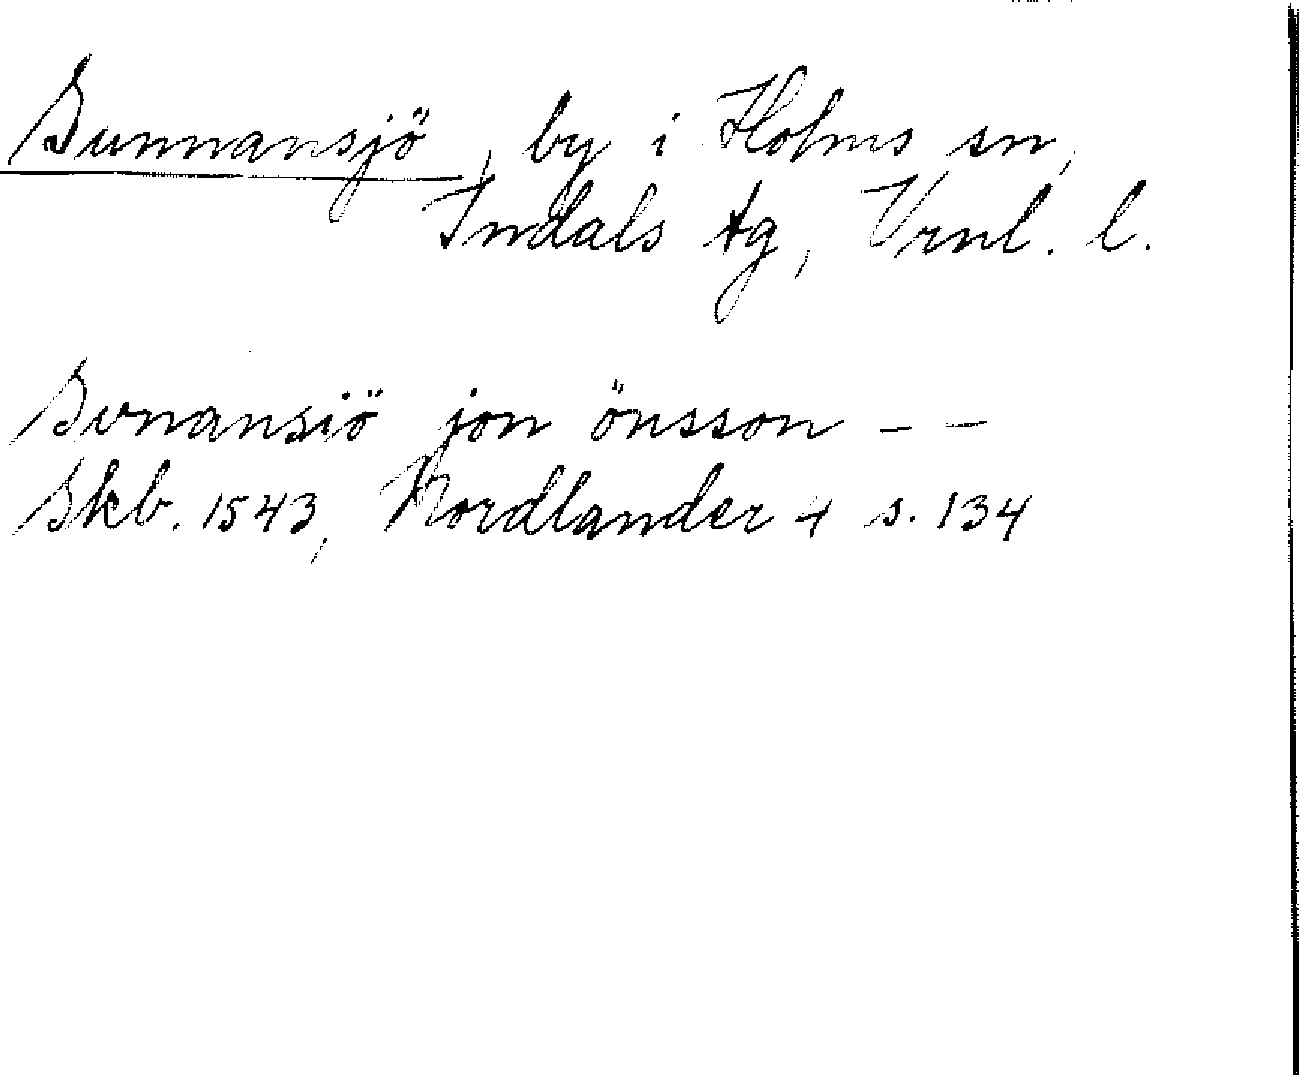 Sunnansjö, by i Holms sn,
Indals tg, Vrnl. l.
Svnansiö jon önsson - -
Skb. 1543, Nordlander 4 s. 134